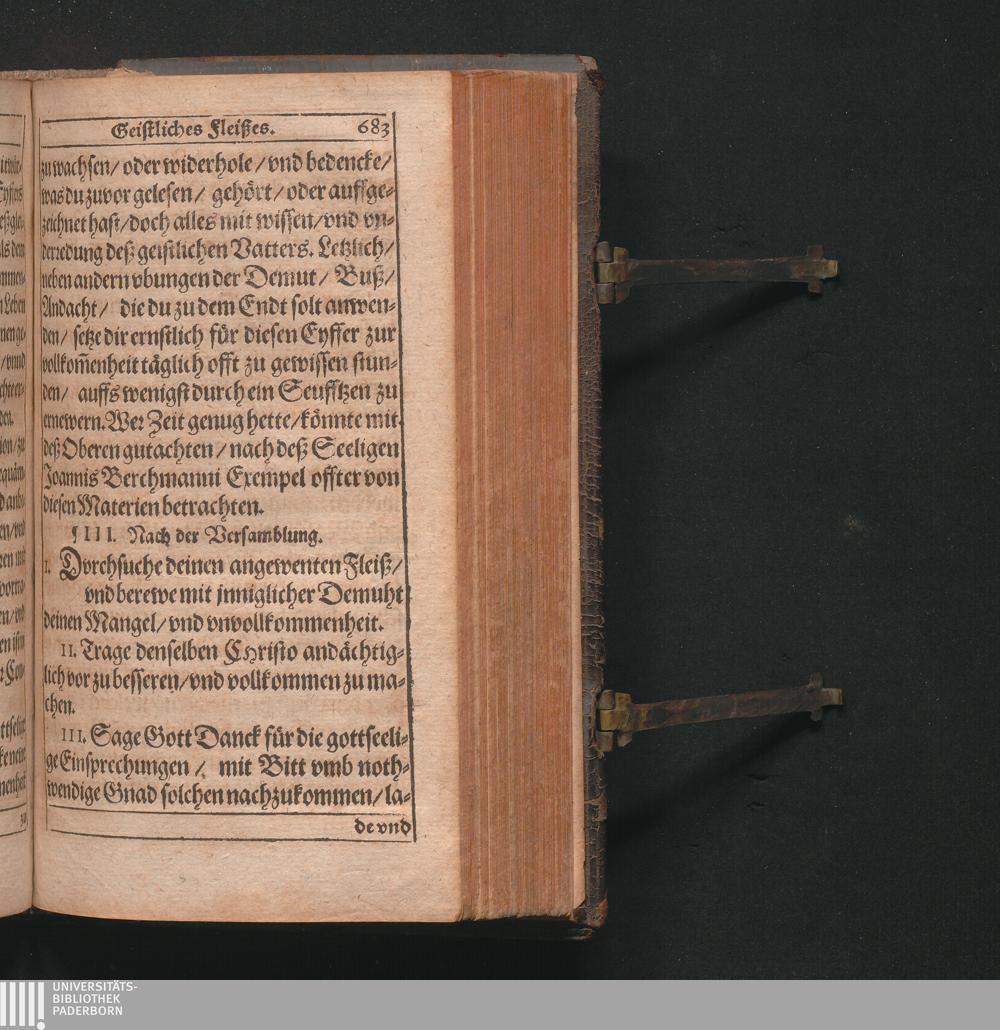 Geistliches Fleißes. 683
zu wachsen/ oder widerhole/ vnd bedencke/
was du zuvor gelesen/ gehört/ oder auffge-
zeichnet hast/ doch alles mit wissen/ vnd vn-
derredung deß geistlichen Vatters. Letzlich/
neben andern vbungen der Demut/ Buß/
Andacht/ die du zu dem Endt solt anwen-
den/ setze dir ernstlich für diesen Eyffer zur
vollkom̃enheit täglich offt zu gewissen stun-
den/ auffs wenigst durch ein Seufftzen zu
ernewern. Wer Zeit genug hette/ könnte mit
deß Oberen gutachten/ nach deß Seeligen
Joannis Berchmanni Exempel offter von
diesen Materien betrachten.
¶ III. Nach der Versamblung.
I. Dvrchsuche deinen angewenten Fleiß/
vnd berewe mit jnniglicher Demuht
deinen Mangel/ vnd vnvollkommenheit.
II. Trage denselben CHristo andächtig-
lich vor zu besseren/ vnd vollkommen zu ma-
chen.
III. Sage Gott Danck für die gottseeli-
ge Einsprechungen/ mit Bitt vmb noth-
wendige Gnad solchen nachzukommen/ la-
de vnd
UNIVERSITÄTS-
BIBLIOTHEK
PADERBORN